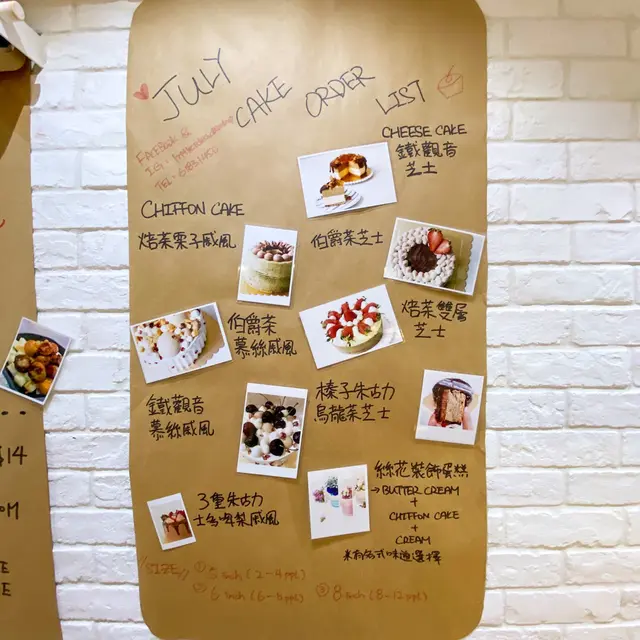 JULY CAKE ORDER LIST
FACEBOOK &
IG :
TEL :
CHIFFON CAKE
焙茶栗子戚風
伯爵茶
慕絲戚風
鐵觀音
慕絲戚風
3重朱古力
士多啤梨戚風
CHEESE CAKE
鐵觀音
芝士
伯爵茶芝士
焙茶雙層
芝士
榛子朱古力
烏龍茶芝士
絲花裝飾蛋糕
→ BUTTER CREAM
+
CHIFFON CAKE
+
CREAM
米有各式味道選擇
//SIZE// ① 5 inch (2-4ppl)
② 6 inch (6-8ppl) ③ 8 inch (8-12ppl)
$14